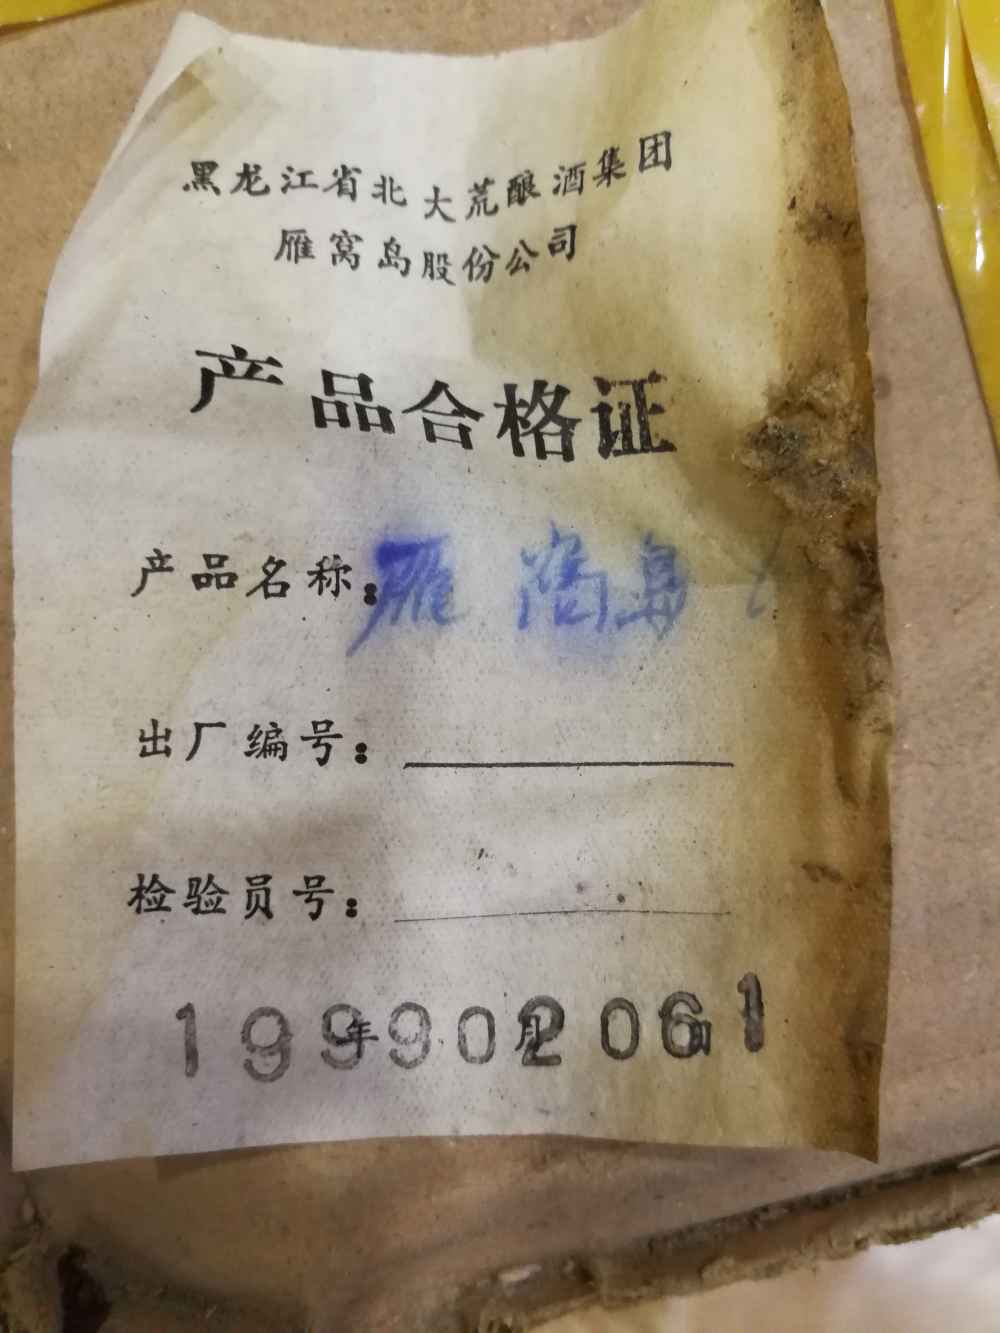 黑龙江省北大荒酿酒集团
雁窝岛股份公司
产品合格证
产品名称：雁窝岛
出厂编号：
检验员号：
年 月 日
199902061